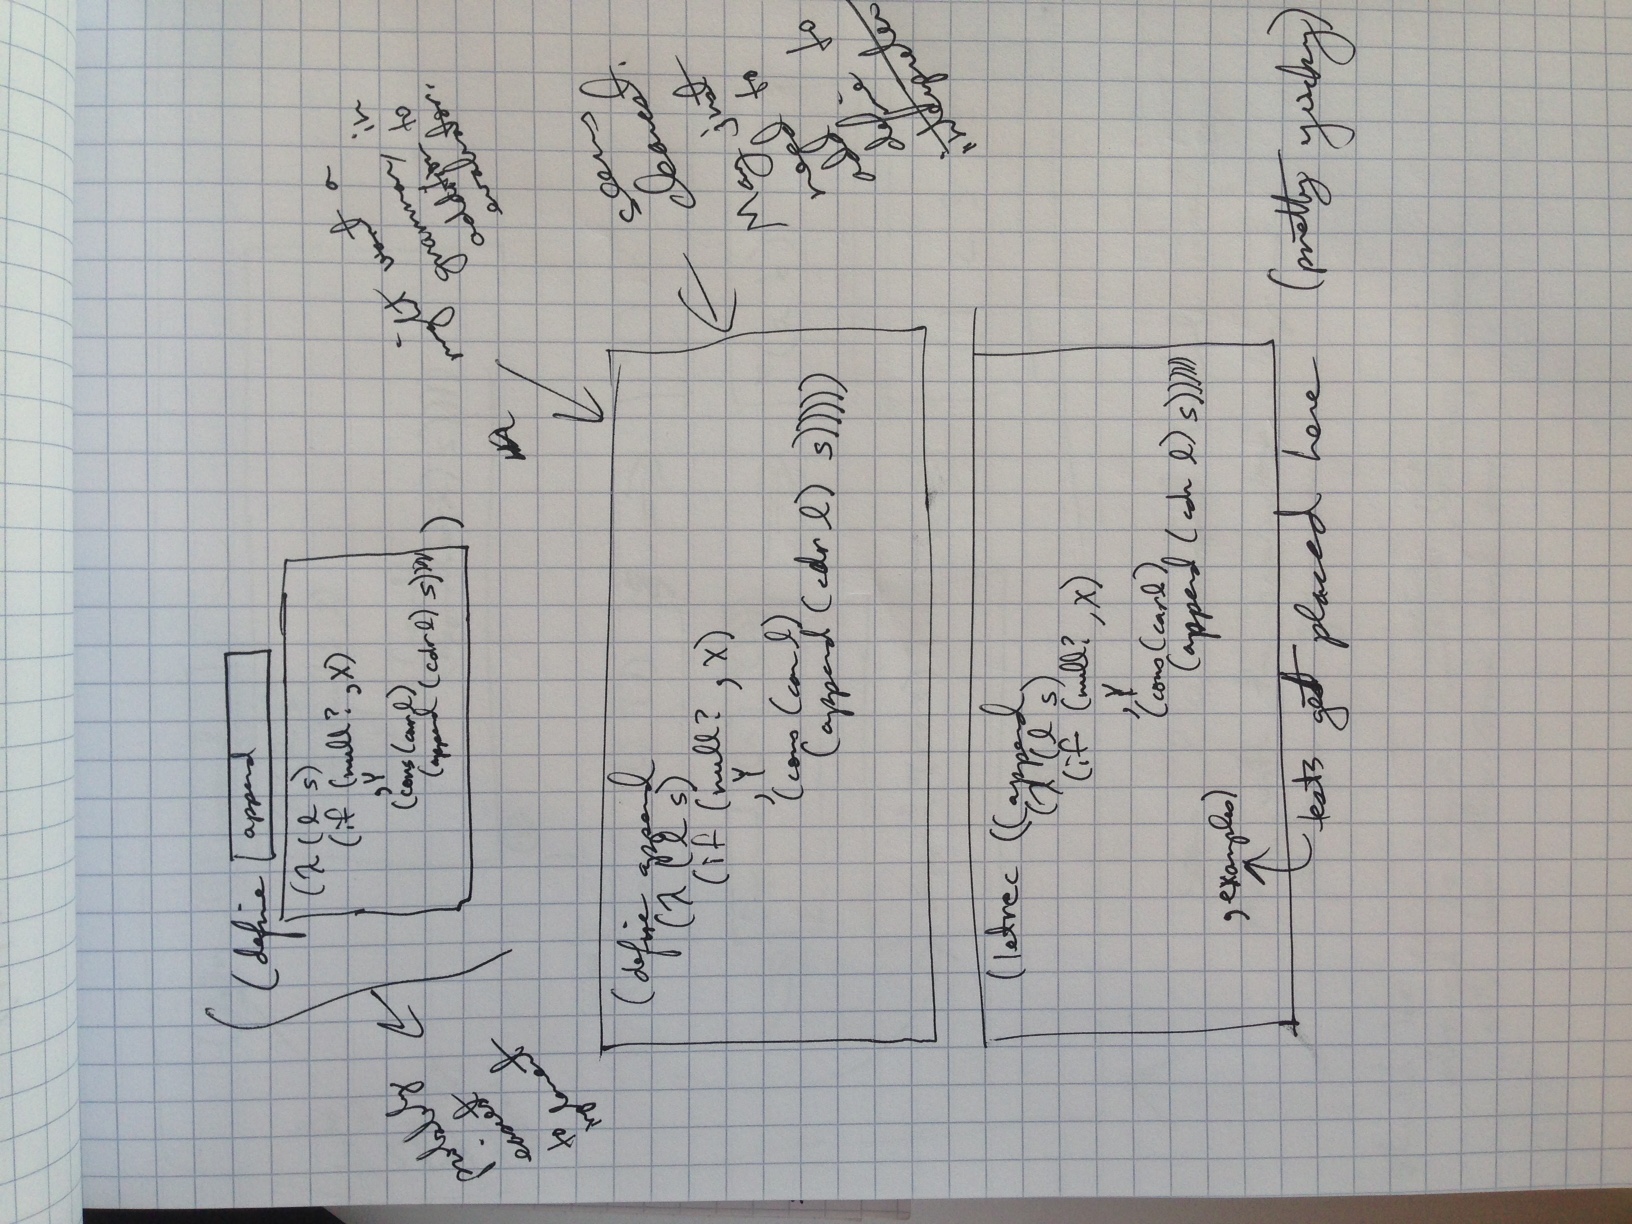 (define append
(λ (l s)
(if (null? ,X)
,Y
(cons (car l)
(append (cdr l) s))))
)
probably
easiest
to
implement
might want a
grammar, in
addition to
evaluator.
(define append
(λ (l s)
(if (null? ,X)
,Y
(cons (car l)
(append (cdr l) s)))))
seems
clearest.
May just
need to
add
define to
interpreter
(letrec ((append
(λ (l s)
(if (null? ,X)
,Y
(cons (car l)
(append (cdr l) s))))))
,examples)
tests get placed here (pretty yucky)